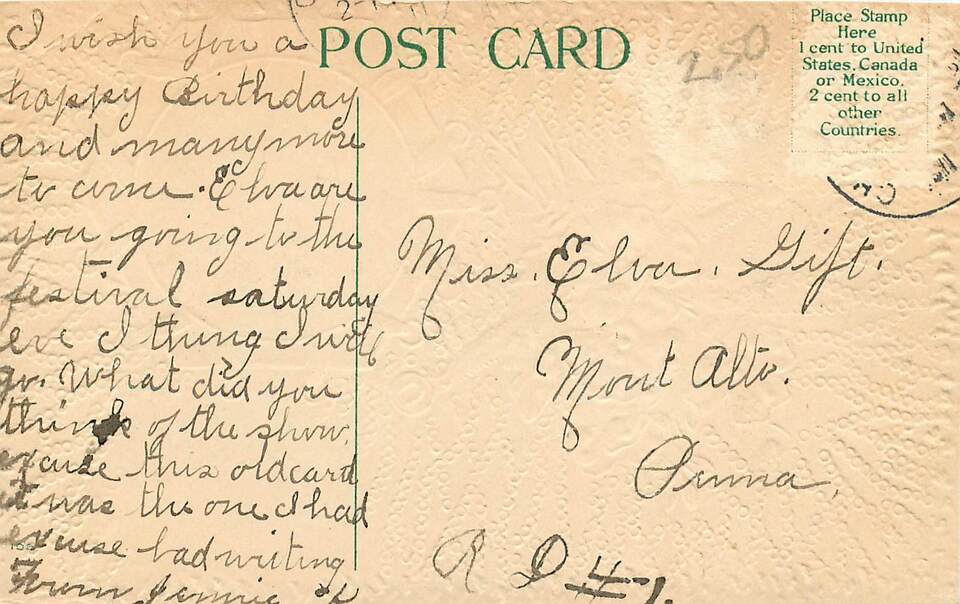 POST CARD
2.50
Place Stamp
Here
1 cent to United
States, Canada
or Mexico,
2 cent to all
other
Countries.
I wish you a
happy Birthday
and many more
to come. Elva are
you going to the
festival saturday
eve I thing I will
go. What did you
think of the show.
excuse this old card
it was the one I had
excuse bad writing
From Jennie
Miss. Elva. Gift.
Mont Alto.
Penna.
R D #1.